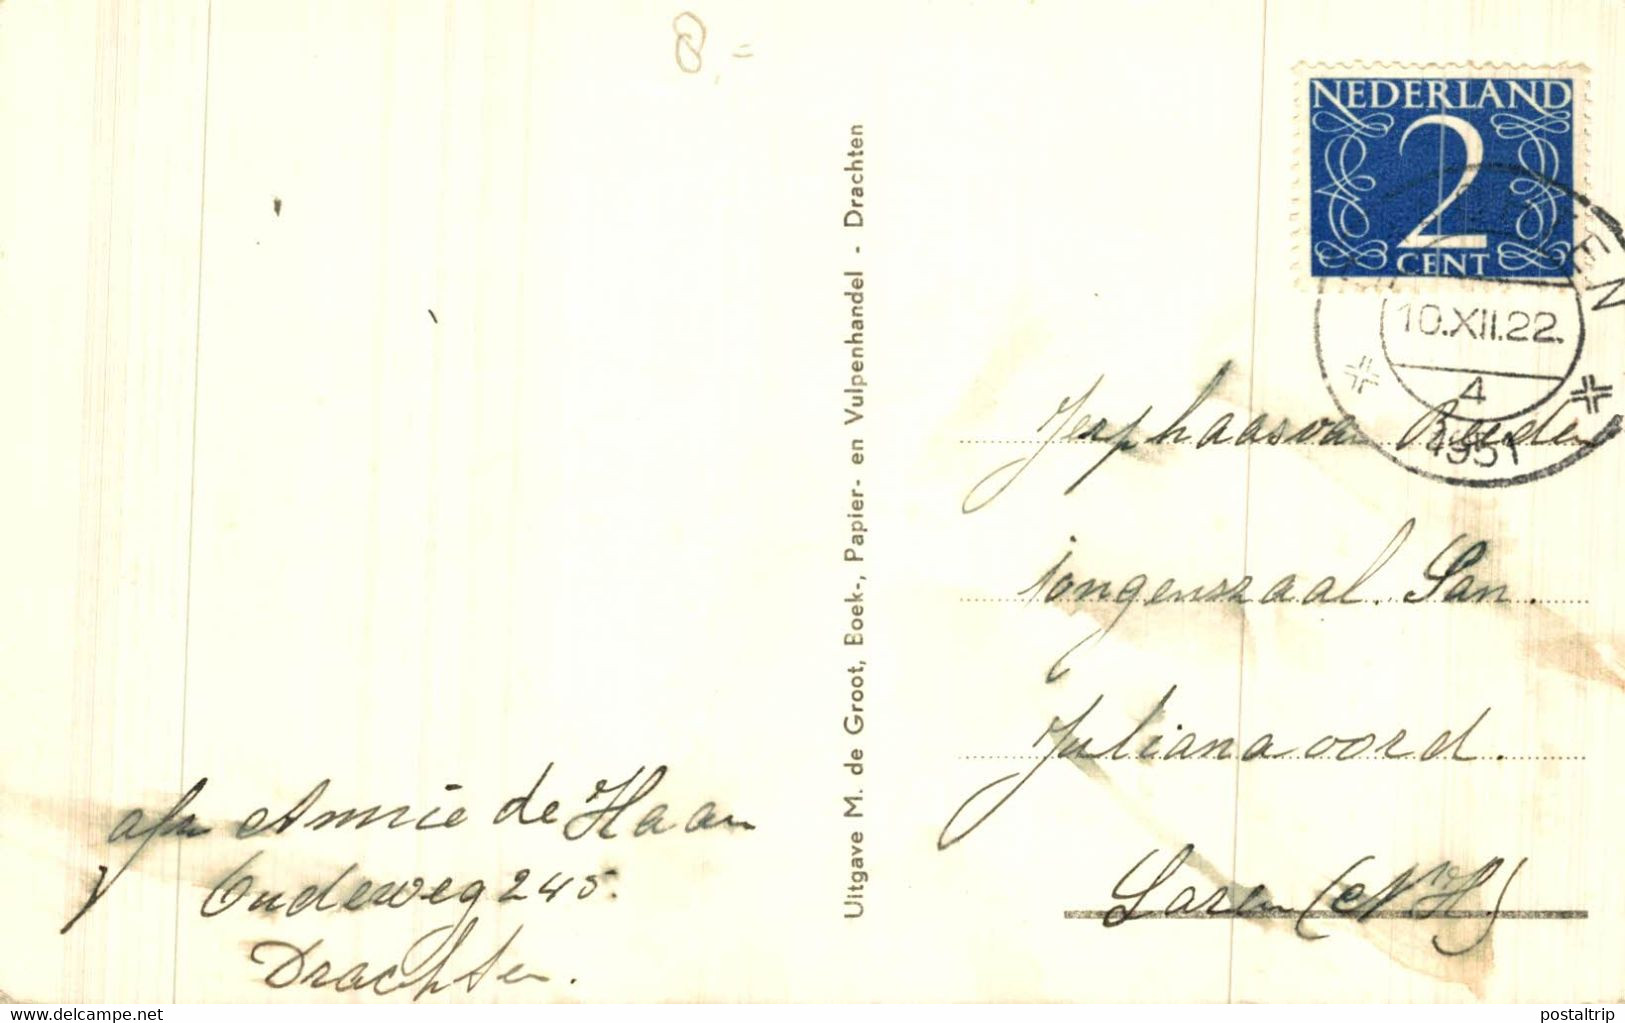 8.=
NEDERLAND
2
CENT
EN
10.XII.22.
4
1951
Uitgave M. de Groot, Boek-, Papier- en Vulpenhandel - Drachten
haas van Reeden
jongenszaal. San.
Julianaoord.
Laren (N.H.)
Annie de Haan
Oudeweg 245.
Drachten.
www.delcampe.net
postaltrip